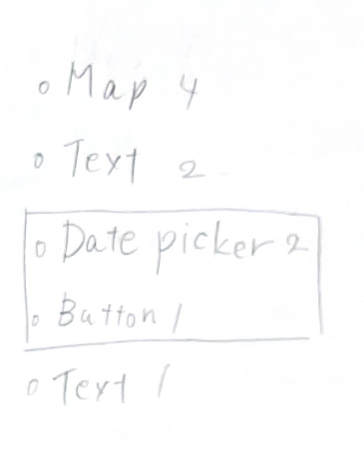 o Map 4
o Text 2
o Date picker 2
o Button 1
o Text 1